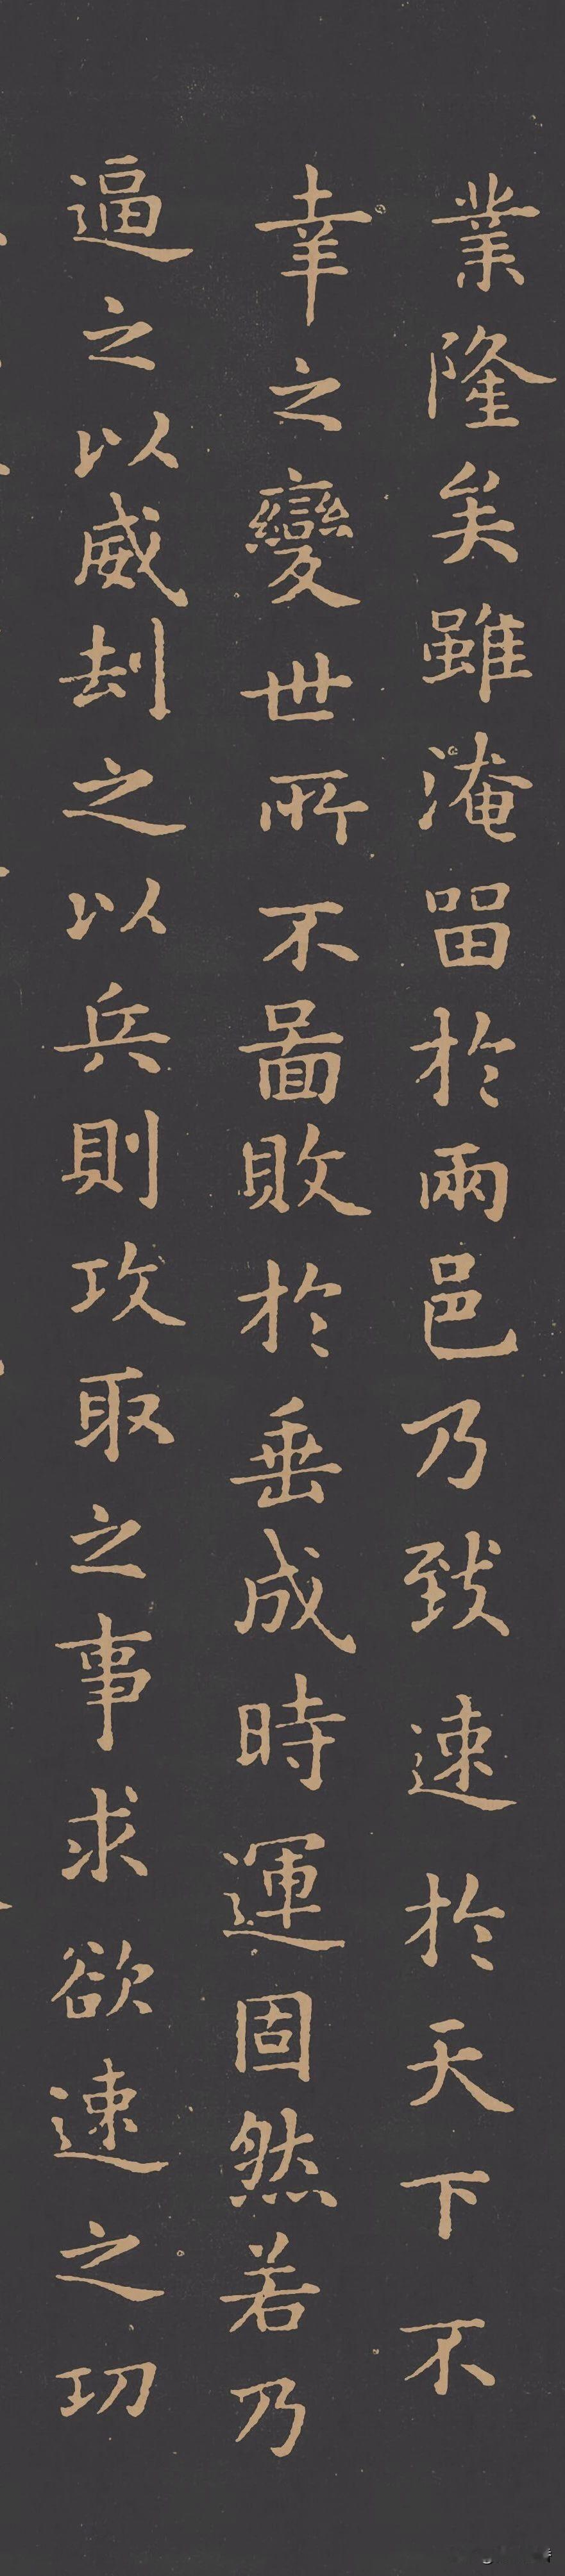 業隆矣雖淹留於兩邑乃致速於天下不
幸之變世所不圖敗於垂成時運固然若乃
逼之以威刦之以兵則攻取之事求欲速之功